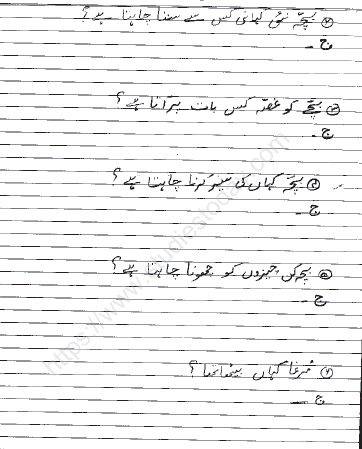 ② بچّہ نئی کہانی کس سے سننا چاہتا ہے؟
ج ـ
③ بچّے کو غصّہ کس بات پر آتا ہے؟
ج ـ
④ بچّہ کہاں کی سیر کرنا چاہتا ہے؟
ج ـ
⑤ بچہ کن چیزوں کو چھونا چاہتا ہے؟
ج ـ
مُرغا کہاں بیٹھا تھا؟
ج ـ
https://www.studiestoday.com